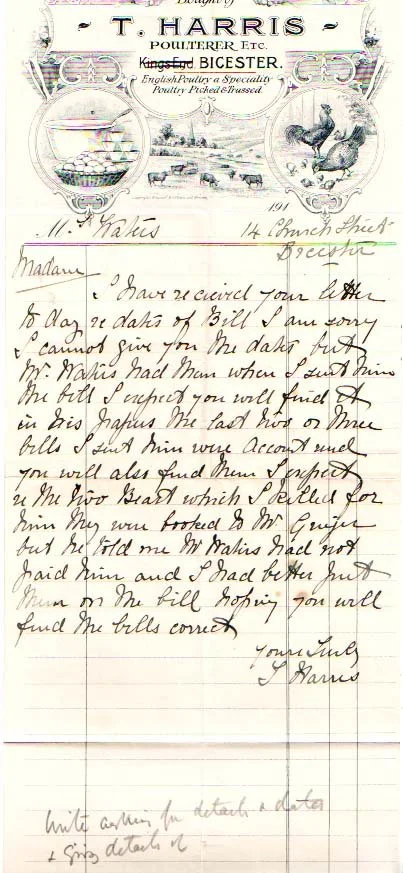 Bought of
T. HARRIS
POULTERER ETC.
Kings End BICESTER.
English Poultry a Speciality
Poultry Picked & Trussed
191
M.rs Waters 14 Church Street
Bicester
Madam
I have recieved your letter
to day re dates of Bill I am sorry
I cannot give you the dates but
Mr. Waters had them when I sent him
the bill I expect you will find it
in his papers the last two or three
bills I sent him were Account and
you will also find them I expect
re the two Beast which I killed for
him they were booked to Mr
but he told me Mr Waters had not
paid him and I had better put
them on the bill hoping you will
find the bills correct
Yours Truly
T Harris
Write asking for details & dates
& giving details of